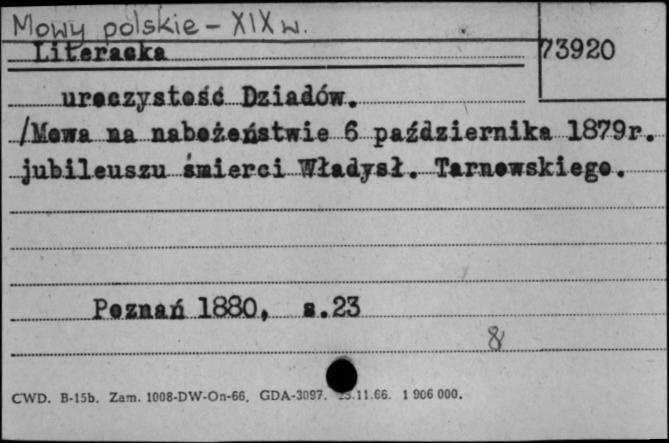 Mowy polskie - XIX w.
Literacka
73920
uroczystość Dziadów.
/Mowa na nabożeństwie 6 października 1879r.
jubileuszu śmierci Władysł. Tarnowskiego.
Poznań 1880, s.23
8
CWD. B-15b. Zam. 1008-DW-On-66. GDA-3097. 23.11.66. 1 906 000.